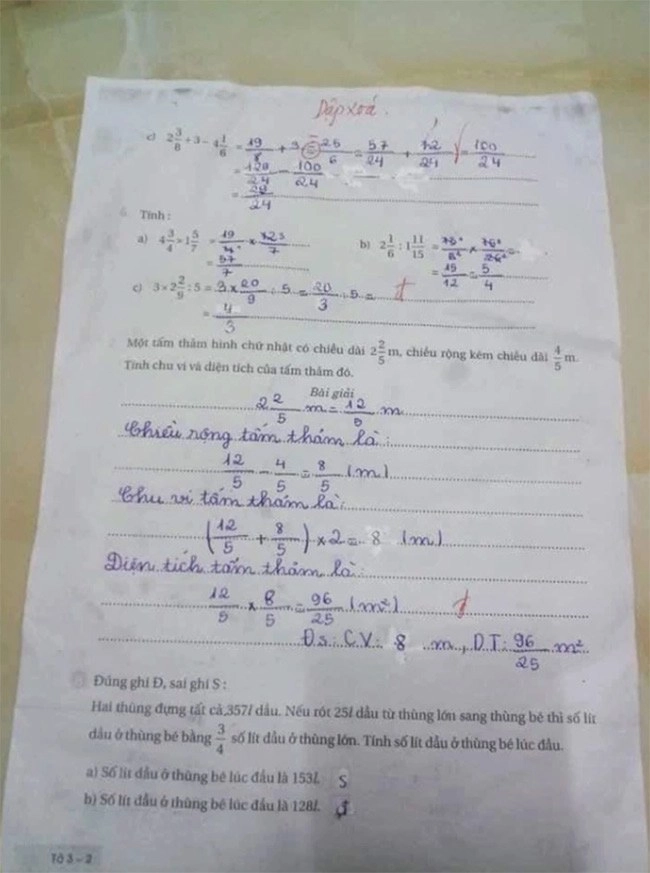 Dập xoá.
c) 2 3/8 + 3 - 4 1/6 = 19/8 + 3 - 25/6 = 57/24 + 72/24 = 100/24
= 129/24 - 100/24
= 29/24
Tính :
a) 4 3/4 × 1 5/7 = 19/4 × 12 3/7
= 57/7
b) 2 1/6 : 1 11/15
= 15/12 = 5/4
c) 3 × 2 2/9 : 5 = 3 × 20/9 : 5 = 20/3 : 5 =
= 4/3
Một tấm thảm hình chữ nhật có chiều dài 2 2/5 m, chiều rộng kém chiều dài 4/5 m.
Tính chu vi và diện tích của tấm thảm đó.
Bài giải
2 2/5 m = 12/5 m
Chiều rộng tấm thảm là:
12/5 - 4/5 = 8/5 (m)
Chu vi tấm thảm là:
(12/5 + 8/5) × 2 = 8 (m)
Diện tích tấm thảm là:
12/5 × 8/5 = 96/25 (m²)
Đs: C.V: 8 m, D.T: 96/25 m²
Đúng ghi Đ, sai ghi S :
Hai thùng đựng tất cả 357l dầu. Nếu rót 25l dầu từ thùng lớn sang thùng bé thì số lít
dầu ở thùng bé bằng 3/4 số lít dầu ở thùng lớn. Tính số lít dầu ở thùng bé lúc đầu.
a) Số lít dầu ở thùng bé lúc đầu là 153l. S
b) Số lít dầu ở thùng bé lúc đầu là 128l.
Tờ 3 - 2